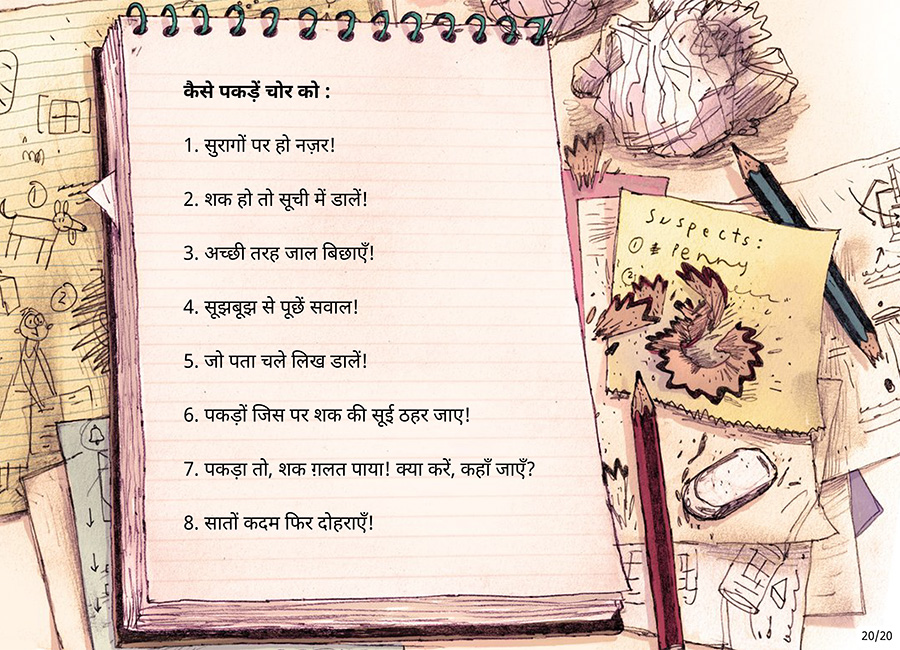 कैसे पकड़ें चोर को :
1. सुरागों पर हो नज़र!
2. शक हो तो सूची में डालें!
3. अच्छी तरह जाल बिछाएँ!
4. सूझबूझ से पूछें सवाल!
5. जो पता चले लिख डालें!
6. पकड़ों जिस पर शक की सूई ठहर जाए!
7. पकड़ा तो, शक ग़लत पाया! क्या करें, कहाँ जाएँ?
8. सातों कदम फिर दोहराएँ!
Suspects:
① Penny
②
①
②
20/20